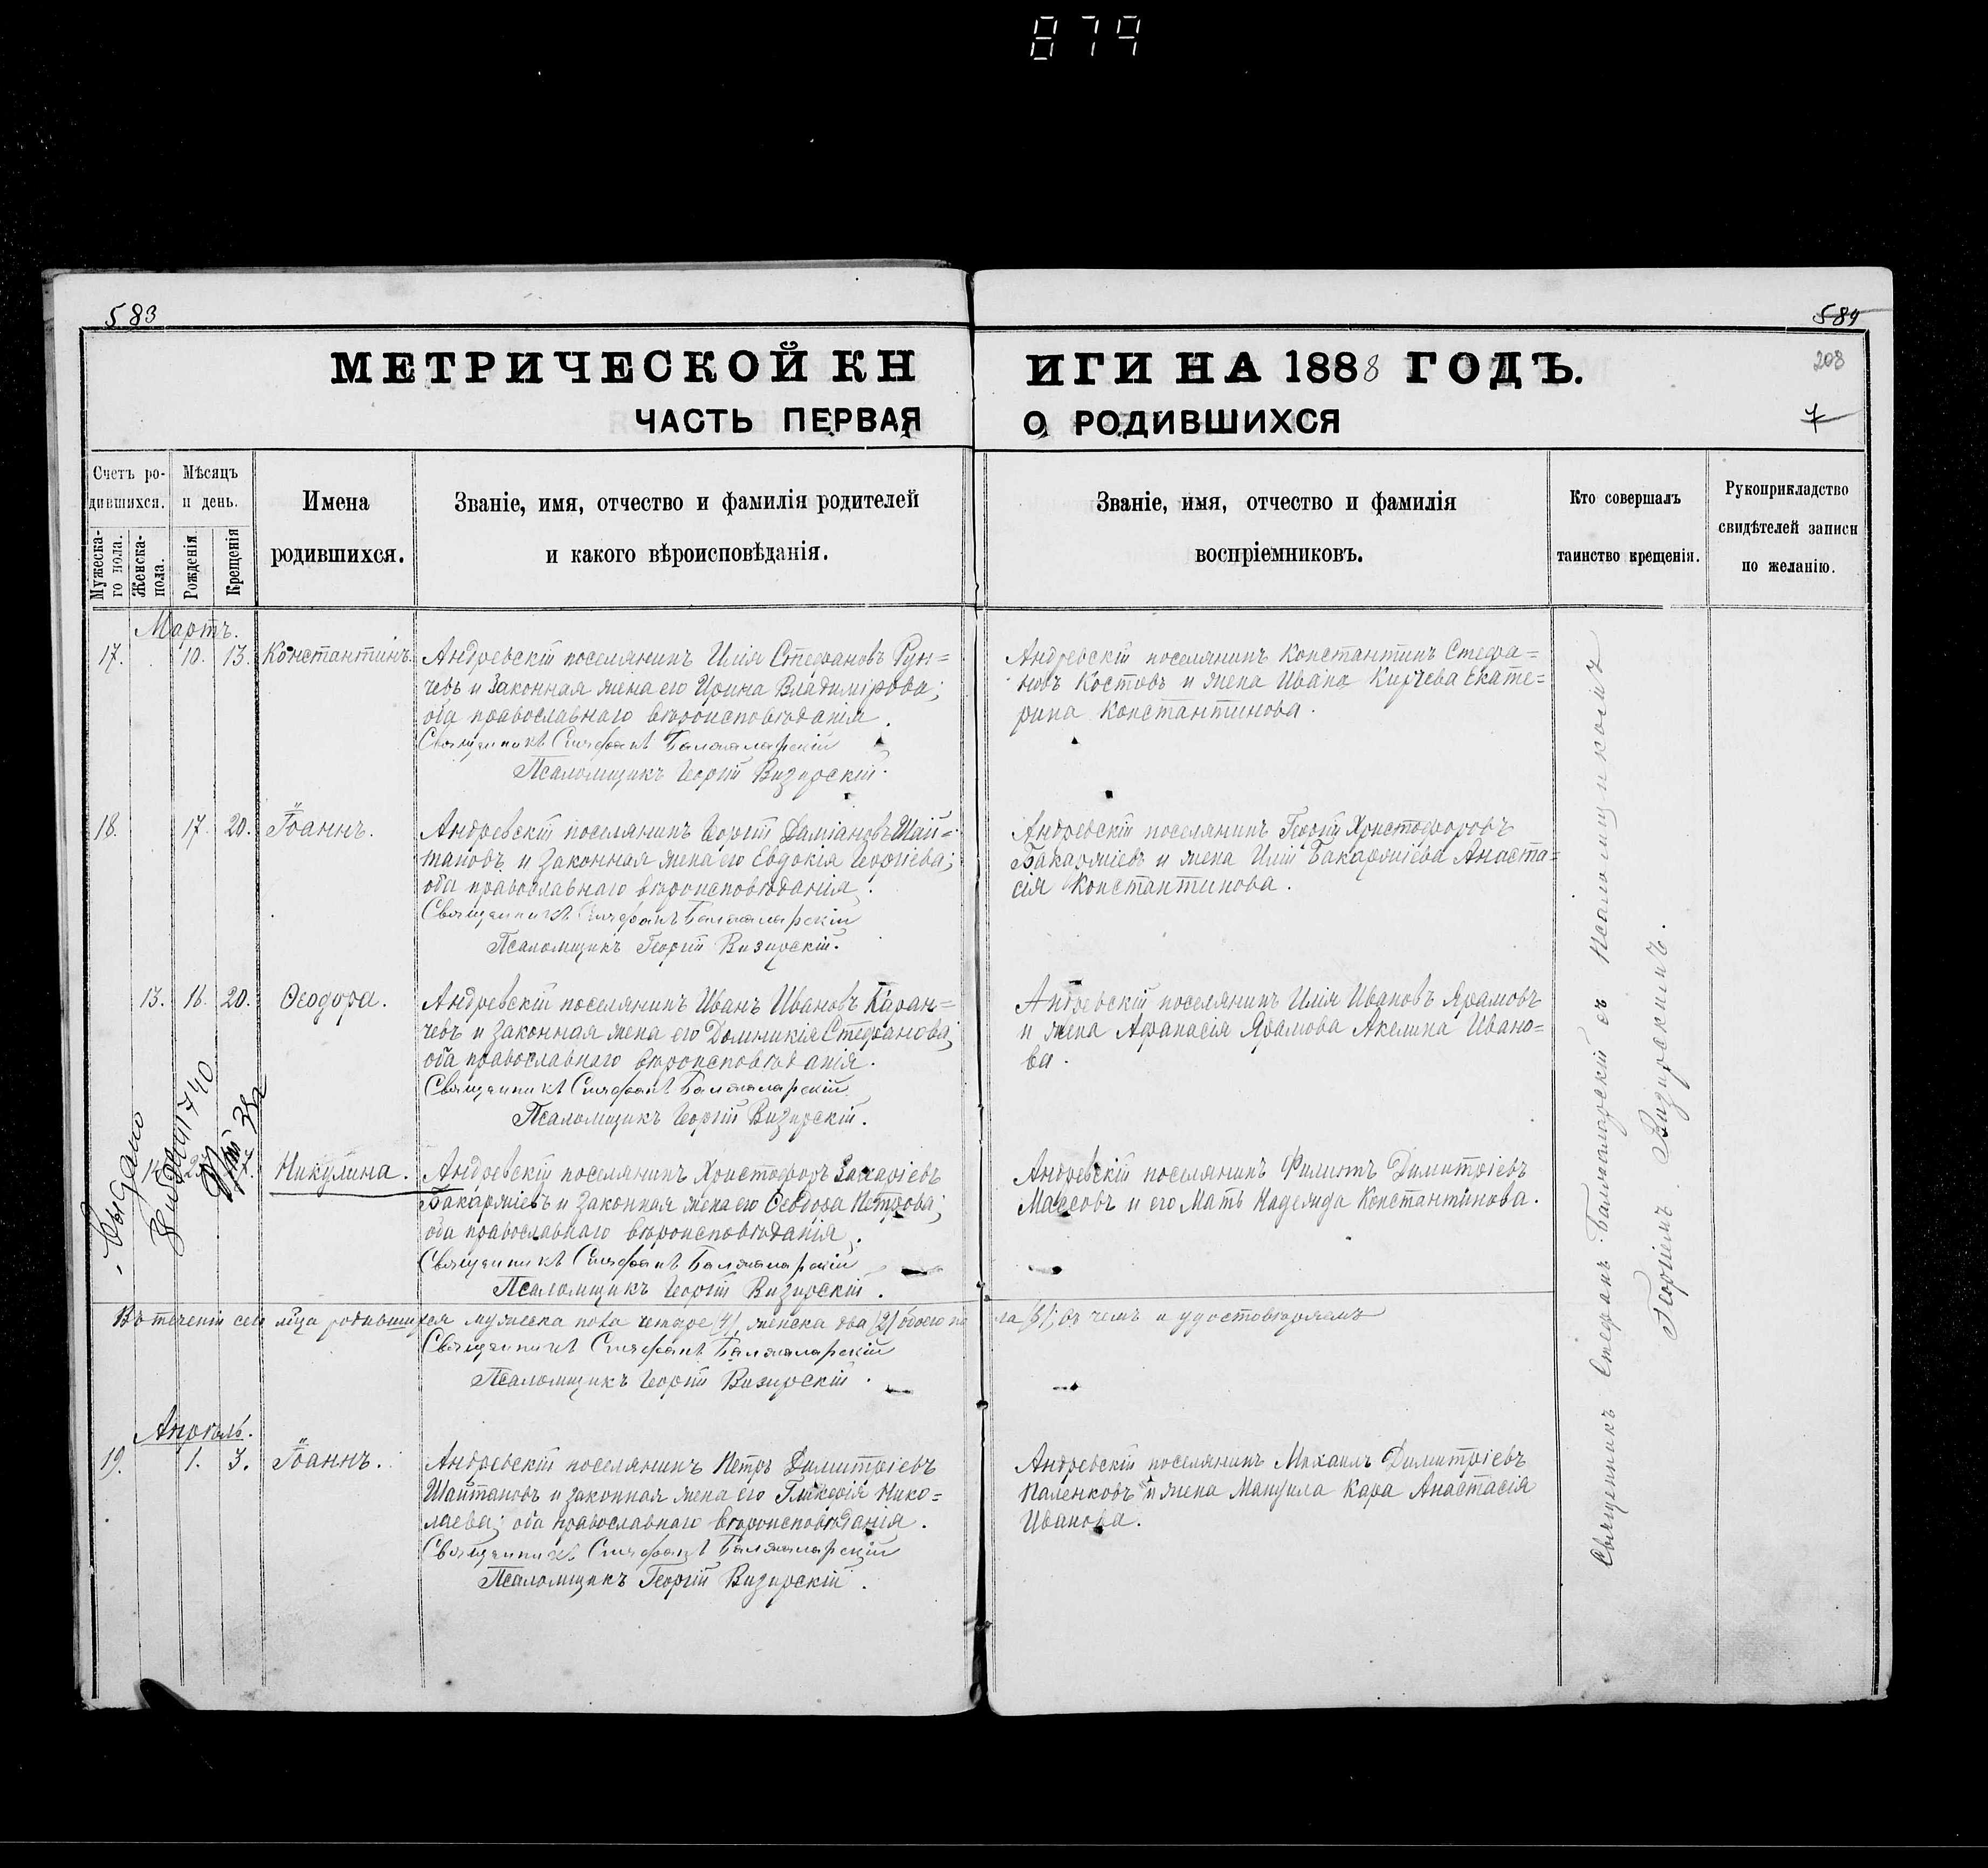 879
583
584
208
7
МЕТРИЧЕСКОЙ КНИГИ НА 1888 ГОДЪ.
ЧАСТЬ ПЕРВАЯ О РОДИВШИХСЯ
Счетъ родившихся.
Мужескаго пола.
Женска пола.
Мѣсяцъ и день.
Рожденія
Крещенія
Имена родившихся.
Званіе, имя, отчество и фамилія родителей
и какого вѣроисповѣданія.
Званіе, имя, отчество и фамилія
воспріемниковъ.
Кто совершалъ
таинство крещенія.
Рукоприкладство
свидѣтелей записи
по желанію.
Мартъ.
17. 10. 13. Константинъ.
Андреевскій поселянинъ Илія Стефановъ Рун=
чевъ и законная жена его Ирина Владимірова;
оба православнаго вѣроисповѣданія.
Священникъ Стефанъ Балталарскій
Псаломщикъ Георгій Визирскій.
Андреевскій поселянинъ Константинъ Стефа=
новъ Костовъ и жена Ивана Кирчева Екате=
рина Константинова.
18. 17. 20. Іоаннъ.
Андреевскій поселянинъ Георгій Даміановъ Шай=
тановъ и законная жена его Евдокія Георгіева;
оба православнаго вѣроисповѣданія.
Священникъ Стефанъ Балталарскій
Псаломщикъ Георгій Визирскій.
Андреевскій поселянинъ Георгій Христофоровъ
Бакаржіевъ и жена Иліи Бакаржіева Анаста=
сія Константинова.
13. 16. 20. Ѳеодора.
Андреевскій поселянинъ Иванъ Ивановъ Каран=
чевъ и законная жена его Домникія Стефанова;
оба православнаго вѣроисповѣданія.
Священникъ Стефанъ Балталарскій
Псаломщикъ Георгій Визирскій.
Андреевскій поселянинъ Илія Ивановъ Ярамовъ
и жена Афанасія Ярамова Акелина Ивано=
ва.
Выдано
1740
14. Никулина.
Андреевскій поселянинъ Христофоръ Захаріевъ
Бакаржіевъ и законная жена его Ѳеодора Петрова;
оба православнаго вѣроисповѣданія.
Священникъ Стефанъ Балталарскій
Псаломщикъ Георгій Визирскій.
Андреевскій поселянинъ Филиппъ Димитріевъ
Массовъ и его мать Надежда Константинова.
Въ теченіи сего мѣца родившихся мужеска пола четыре (4), женска два (2) обоего пола (6); въ чемъ и удостовѣряемъ
Священникъ Стефанъ Балталарскій
Псаломщикъ Георгій Визирскій.
Апрель.
19. 1. 3. Іоаннъ.
Андреевскій поселянинъ Петръ Димитріевъ
Шайтановъ и законная жена его Гликерія Нико=
лаева; оба православнаго вѣроисповѣданія.
Священникъ Стефанъ Балталарскій
Псаломщикъ Георгій Визирскій.
Андреевскій поселянинъ Михаилъ Димитріевъ
Паленковъ и жена Мануила Кара Анастасія
Иванова.
Священникъ Стефанъ Балталарскій съ Псаломщикомъ
Георгіемъ Визирскимъ.